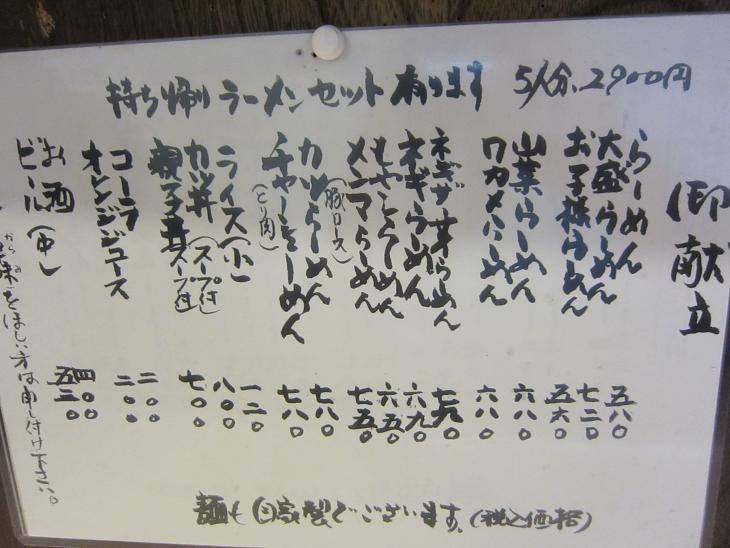 持ち帰りラーメンセット有ります 5人分、2900円
御献立
らーめん 五八〇
大盛らーめん 七二〇
お子様らーめん 五六〇
山菜らーめん 六八〇
ワカメらーめん 六八〇
ネギザーサイらーめん 七九〇
ネギらーめん 六九〇
もやしらーめん 六五〇
メンマらーめん 七五〇
カツらーめん (豚ロース) 七八〇
チャーシューめん (とり肉) 七八〇
ライス(小) 一二〇
カツ丼(スープ付) 八〇〇
親子丼スープ付 七〇〇
コーラ 二〇〇
オレンジジュース 二〇〇
お酒 四〇〇
ビール(中) 五三〇
辛味をほしい方は申し付け下さい。
麺も自家製でございます。(税込価格)